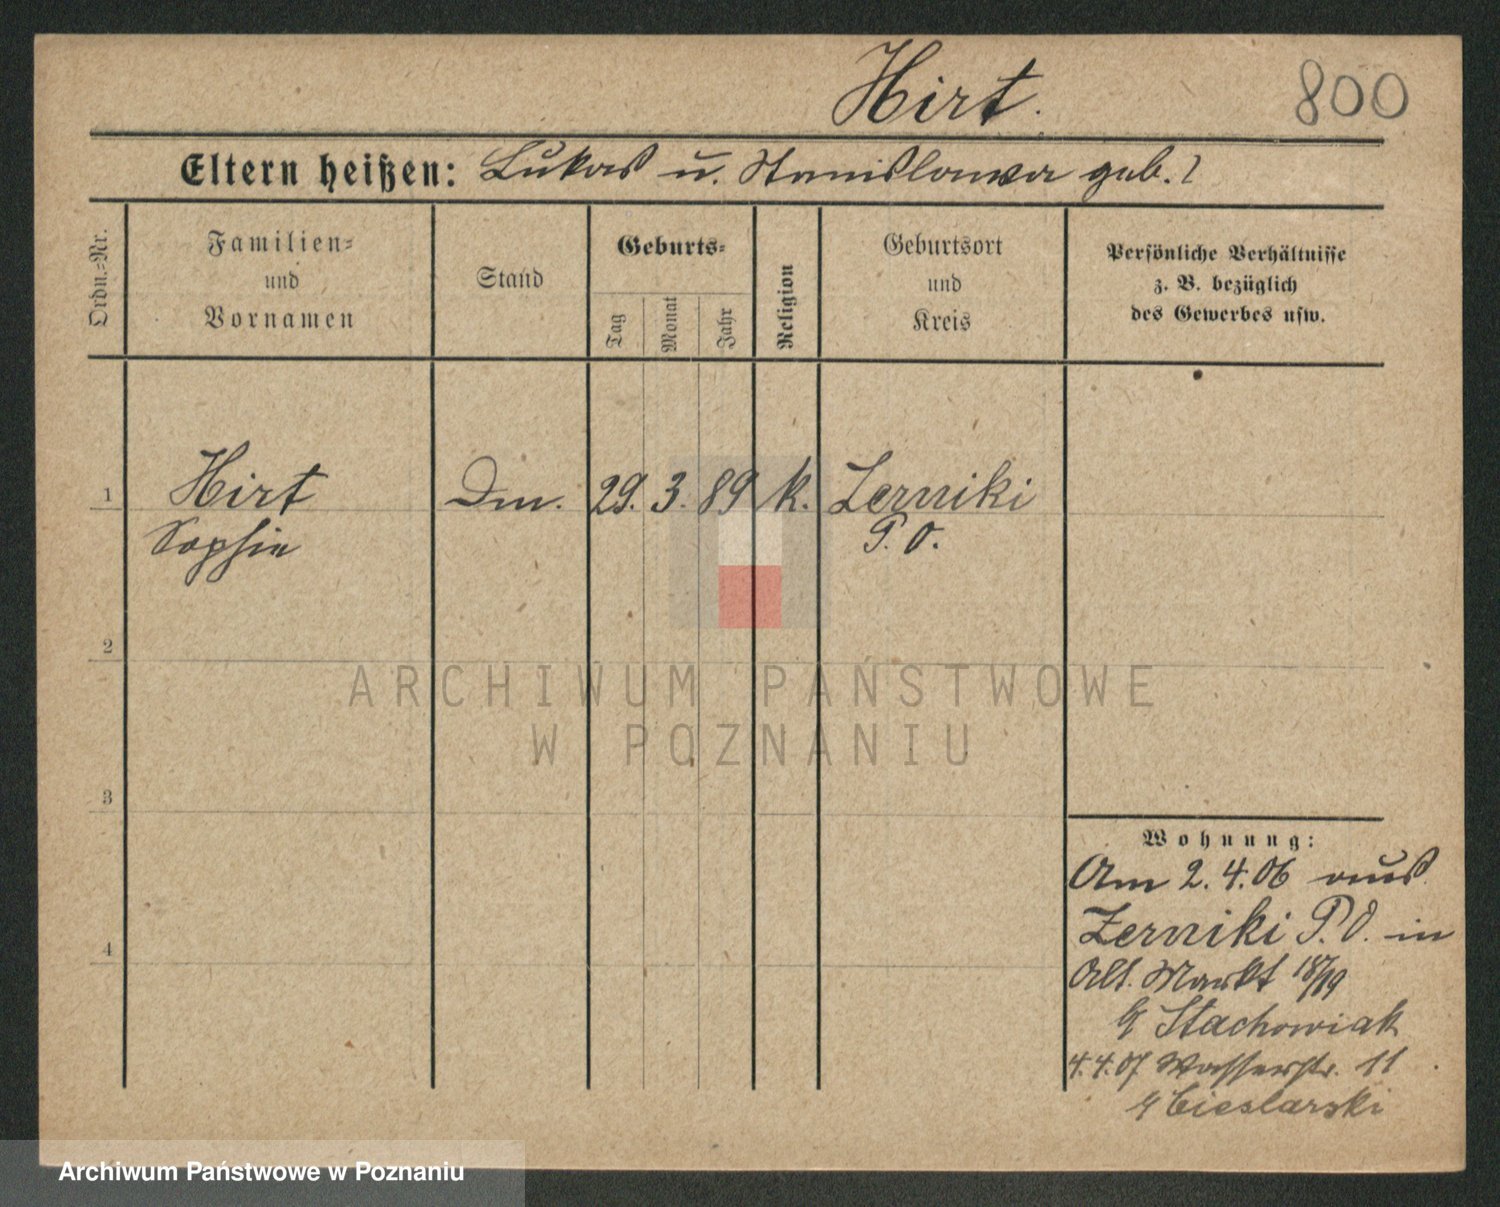 Hirt.
800
Eltern heißen: Lukas u. Stanislawa geb. ?
Ordn.=Nr.
Familien=
und
Vornamen
Stand
Geburts=
Tag
Monat
Jahr
Religion
Geburtsort
und
Kreis
Persönliche Verhältnisse
z. B. bezüglich
des Gewerbes usw.
1 Hirt Dm. 29. 3. 89 k. Zerniki
Sophie P. O.
2
ARCHIWUM PAŃSTWOWE
W POZNANIU
3
4
Wohnung:
Am 2. 4. 06 aus
Zerniki P. O. in
Alt. Markt 18/19
Stachowiak
4. 4. 07 Wasserstr. 11
Cieslarski
Archiwum Państwowe w Poznaniu